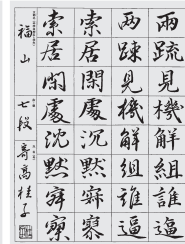 兩疏見機解組誰逼
兩疎見機解組誰逼
索居閑處沉默寂寥
索居閑處沈默寂寥
福山 七段 高桂子